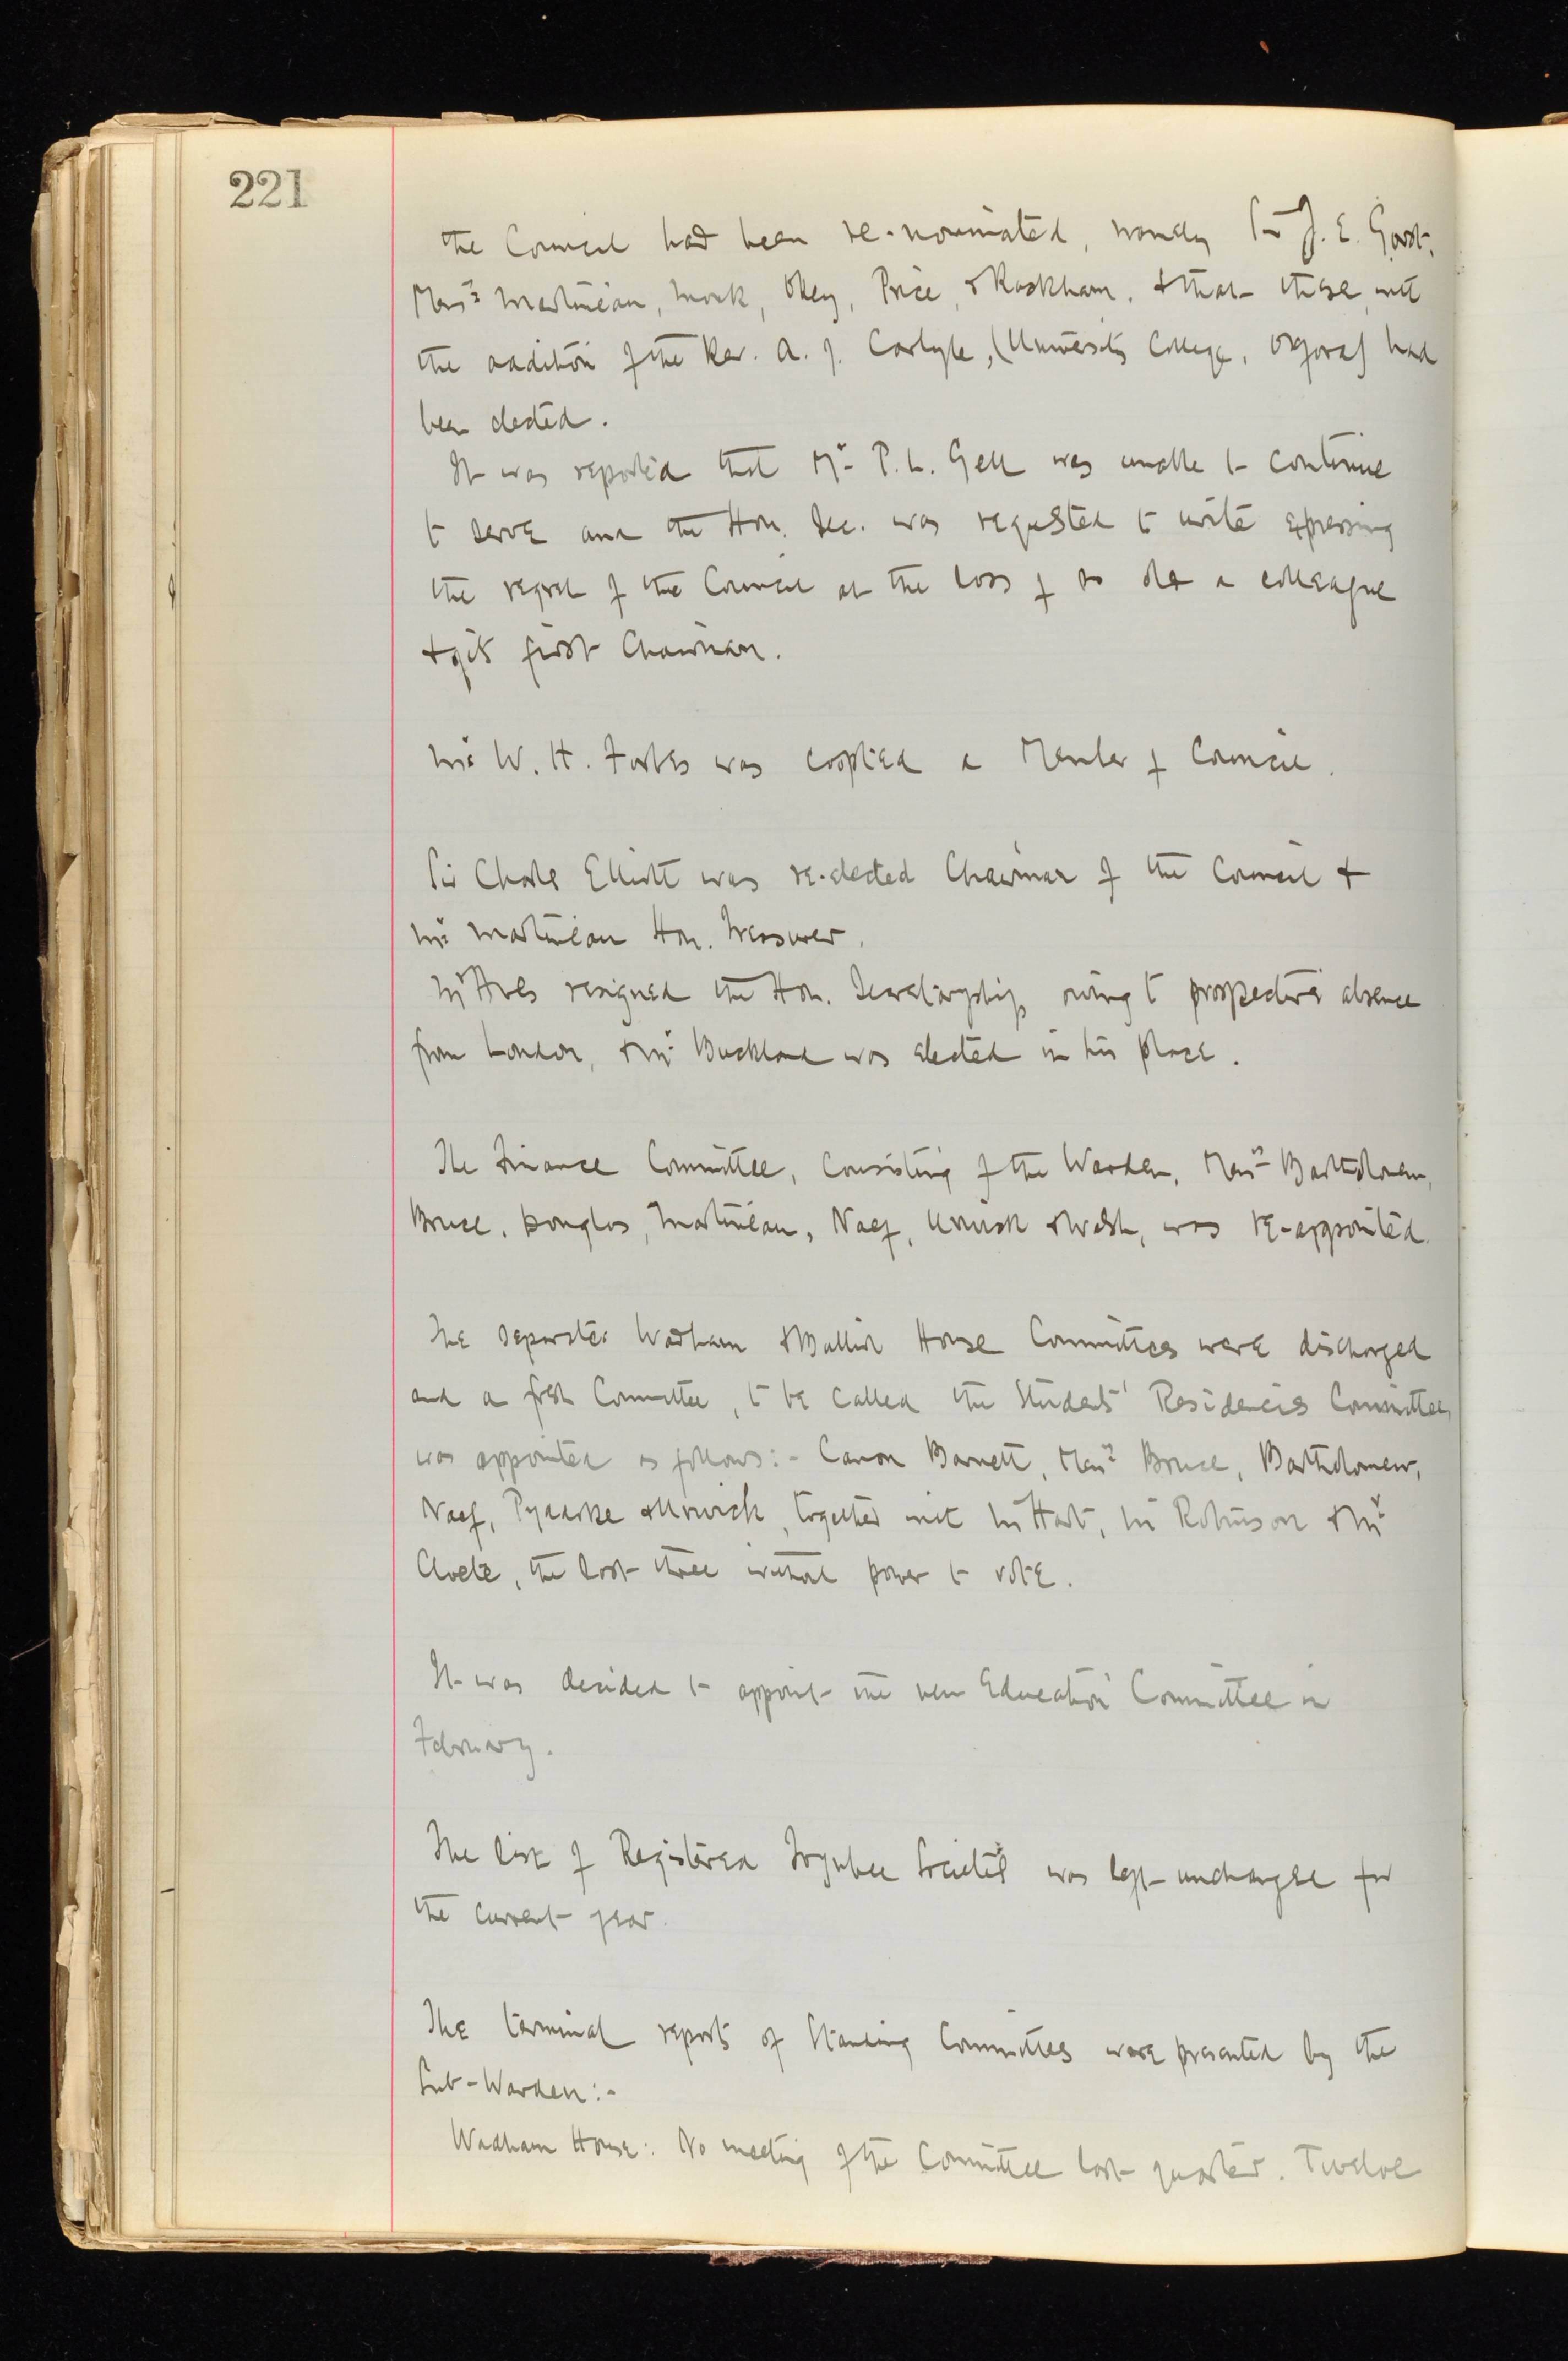 221
the Council had been re-nominated, namely Sir J. E. Gorst,
Mess.rs Martineau, Monk, Okey, Price, & Rackham, & that these, with
the addition of the Rev. A. J. Carlyle, (University College, Oxford) had
been elected.
It was reported that Mr. P. L. Gell was unable to continue
to serve and the Hon. Sec. was requested to write expressing
the regret of the Council at the loss of so old a colleague
& of its first Chairman.
Mr W. H. Forbes was coopted a Member of Council.
Sir Charles Elliott was re-elected Chairman of the Council &
Mr Martineau Hon. Treasurer.
Mr Aves resigned the Hon. Secretaryship, owing to prospective absence
from London, & Mr Buckland was elected in his place.
The Finance Committee, consisting of the Warden, Mess.rs Bartholomew,
Bruce, Douglas, Martineau, Naef, Urwick & Walsh, was re-appointed.
The separate Wadham & Balliol House Committees were discharged
and a fresh Committee, to be called the Students' Residences Committee,
was appointed as follows:- Canon Barnett, Mess.rs Bruce, Bartholomew,
Naef, & Urwick, together with Mr Hart, Mr Robinson & Mr
Cloete, the last three without power to vote.
It was decided to appoint the new Education Committee in
February.
The list of Registered Toynbee Societies was left unchanged for
the current year.
The terminal reports of Standing Committees were presented by the
Sub-Warden:-
Wadham House: No meeting of the Committee last quarter. Twelve